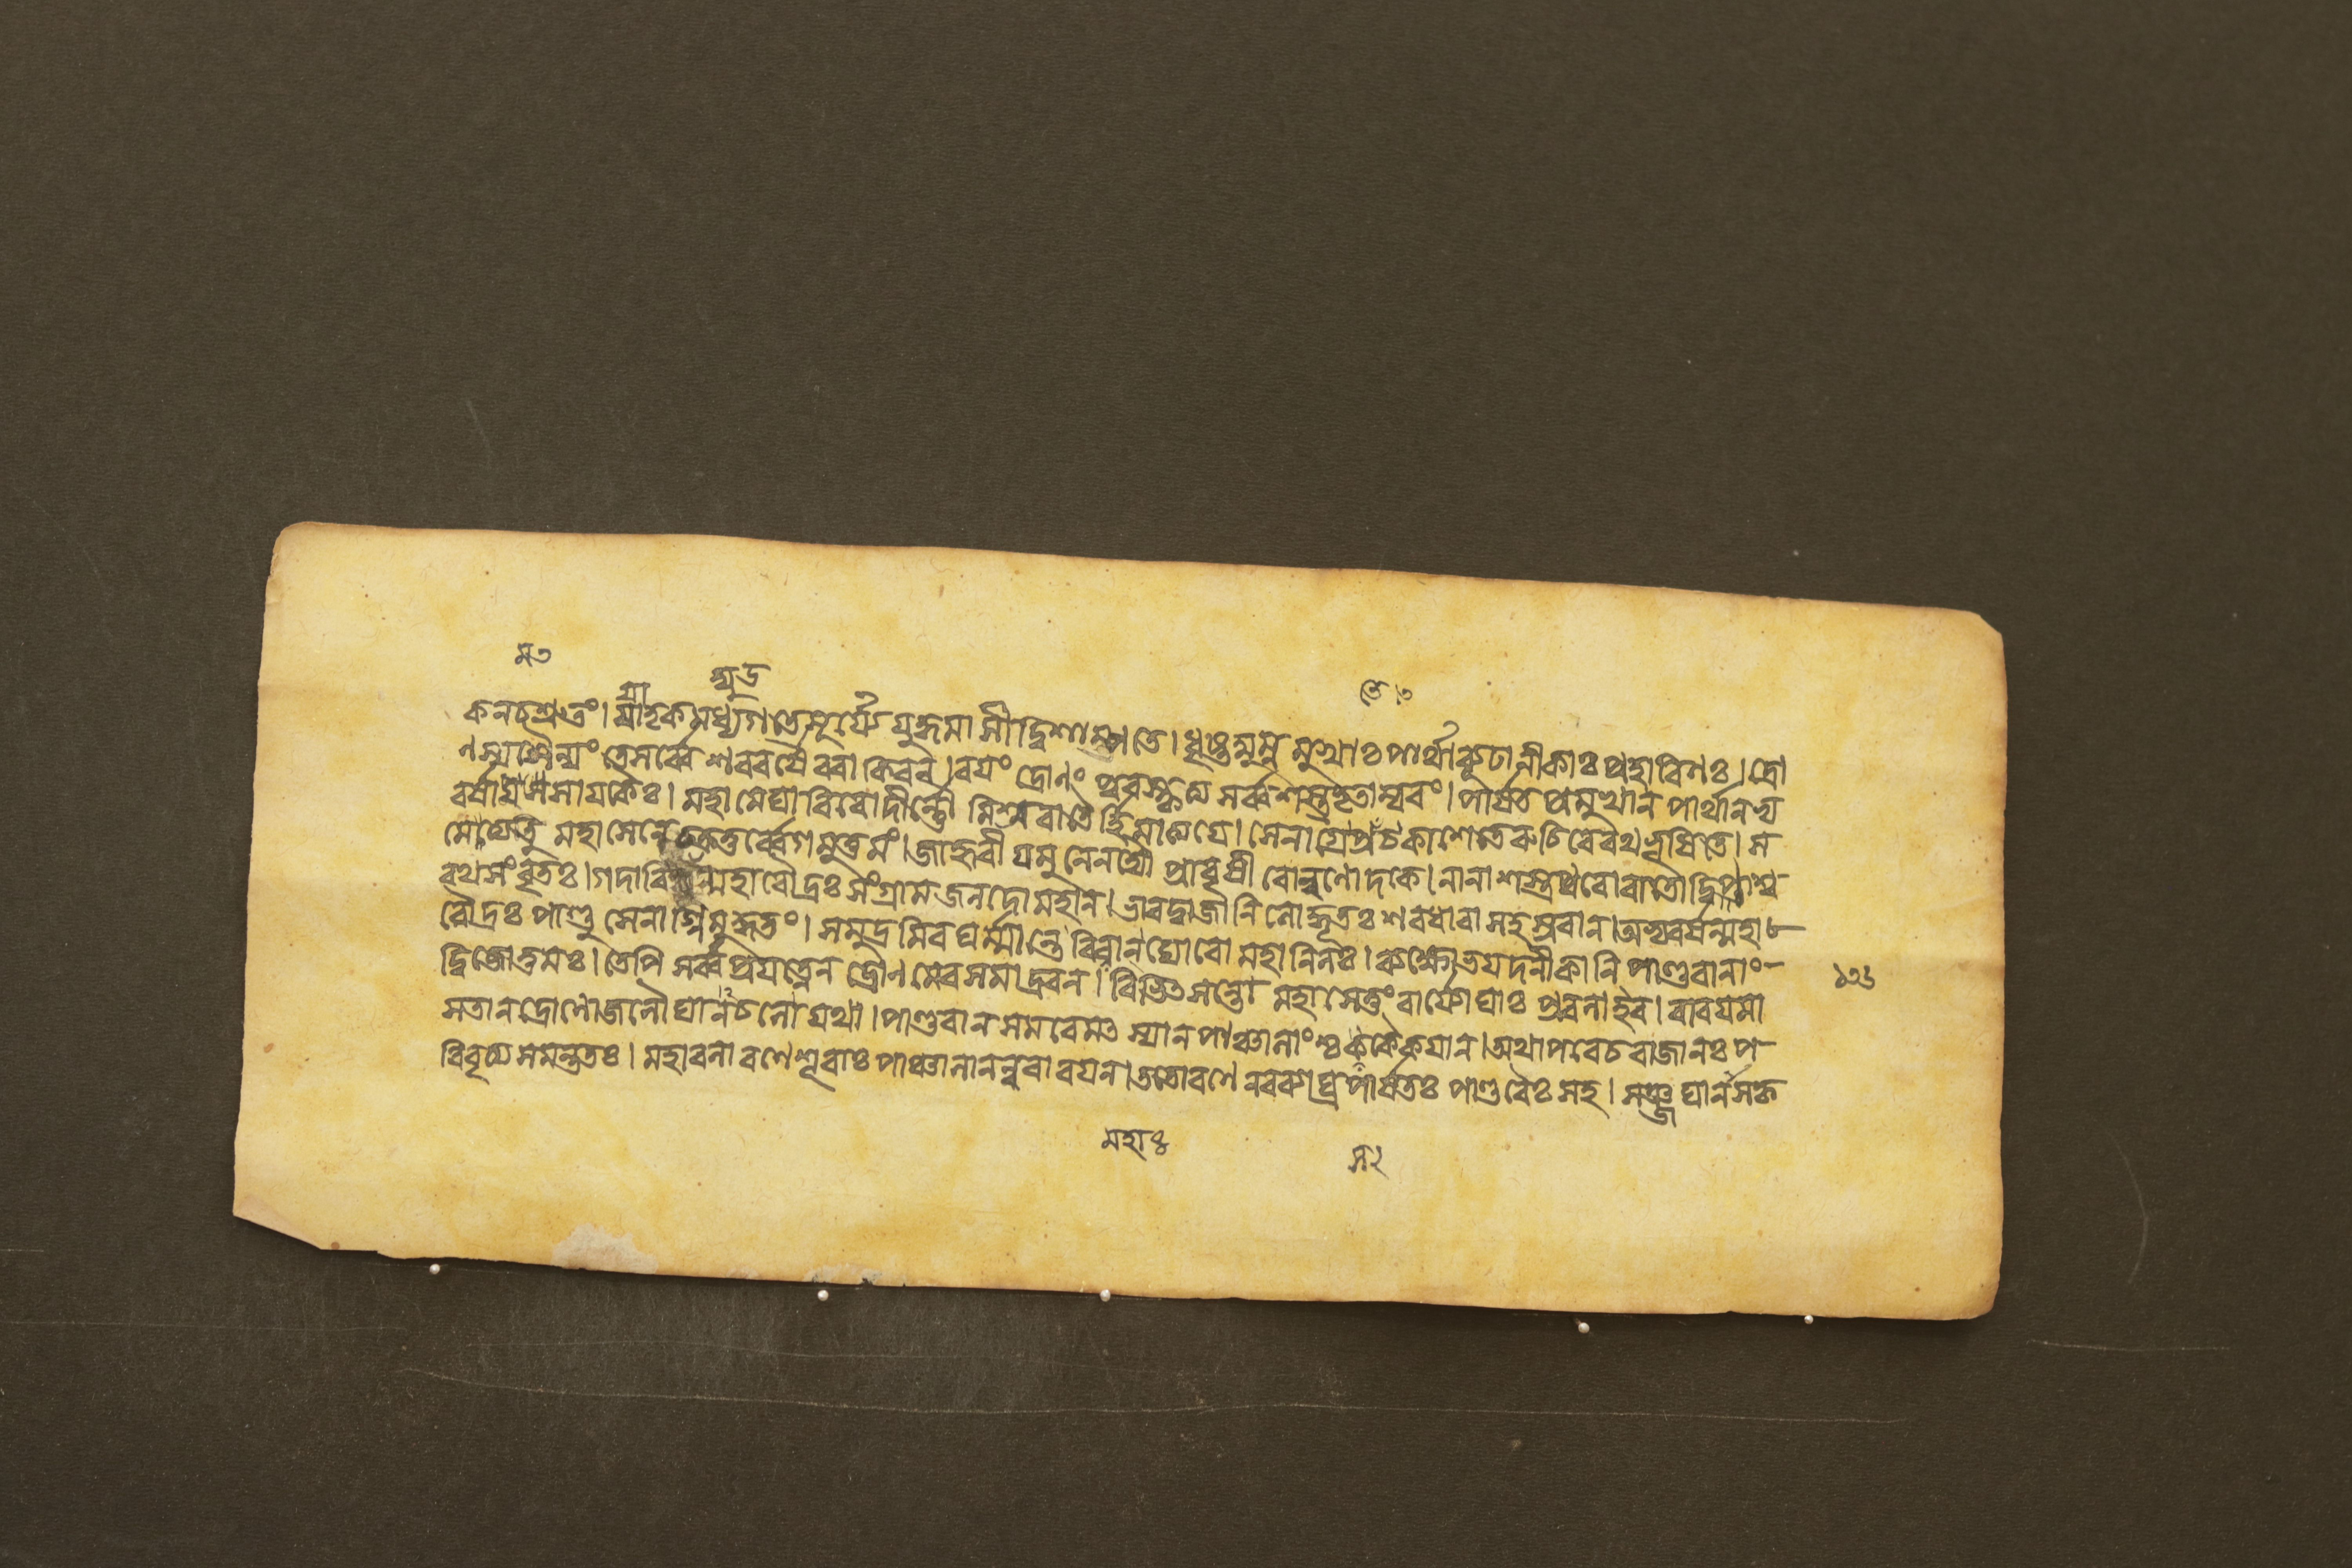 ম৩
ম্যুদ্র
তে।৩
কনচশ্রুতং। ম্যাহ্কমধ্যগতেসূর্য্যে যুদ্ধমাসীদ্বিশাম্পতে। ধৃষ্টদ্যুম্নমুখাঃ পার্থাব্যূঢানীকাঃ প্রহারিণঃ। দ্রো
ণস্যসৈন্যং তেসর্ব্বে শরবর্ষৈরবাকিরন্। বয়ং দ্রোণং পুরস্কৃত্য সর্ব্বশস্ত্রভৃতাম্বরং। পার্ষতপ্রমুখান পার্থানভ্য
বর্ষামসসায়কৈঃ। মহামেঘাবিবোদীর্ণৌ মিশ্রবাতৌহিমাত্যয়ে। সেনাগ্রেপ্রচকাশেতেরুচিরেরথভূষিতে। স
মেত্যেতু মহাসেনেচক্রতুর্ব্বেগমুত্তমং। জাহ্নবীযমুনেনদ্যৌ প্রাবৃষীবোল্বণোদকে। নানাশস্ত্রপুরোবাতোদ্বিপাশ্ব
রথসংবৃতঃ। গদাবিদ্যুন্মহারৌদ্রঃ সংগ্রামজলদোমহান। ভারদ্বাজানিলোদ্ধূতঃ শরধারাসহস্রবান। অভ্যবর্ষন্মহা
রৌদ্রঃ পাণ্ডুসেনাগ্নিমুদ্ধতং। সমুদ্রমিবঘর্ম্মান্তে বিবান ঘোরো মহানিলঃ। ব্যক্ষোভয়দনীকানি পাণ্ডবানাং
দ্বিজোত্তমঃ। তেপি সর্ব্বপ্রযত্নেন দ্রোণমেবসমাদ্রবন। বিভিৎসন্তো মহাসেতুং বার্য্যোঘাঃ প্রবলাইব। বারয়ামা
সতানদ্রোণোজলৌঘানচলো যথা। পাণ্ডবানসমরে পাঞ্চালাংশ্চকৈকয়ান। অথাপরেচরাজানঃ প
রিবৃত্যসমন্ততঃ। মহাবলারণেশূরাঃ পাঞ্চালানন্ববারয়ন। ততোরণেনরব্যাঘ্রপার্ষতঃ পাণ্ডবৈঃ সহ। সঞ্জঘানসকৃ
১৩৪
মহাঃ